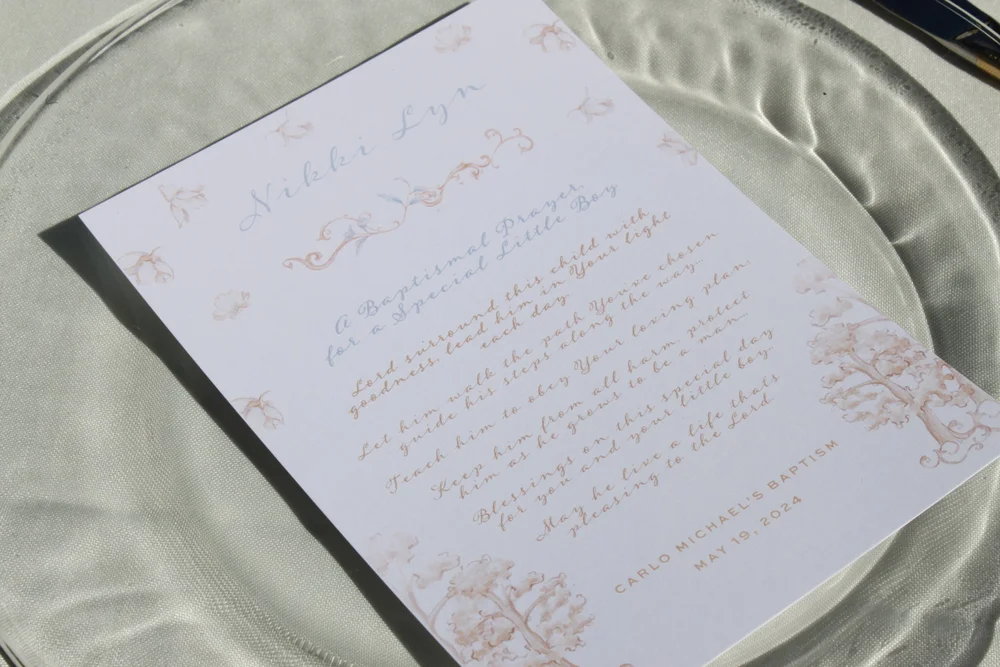 Nikki Lyn
A Baptismal Prayer
for a Special Little Boy
Lord surround this child with
goodness, lead him in Your light
each day.
Let him walk the path You've chosen
guide his steps along the way.
Teach him to obey Your loving plan.
Keep him from all harm, protect
him as he grows to be a man.
Blessings on this special day
for you and your little boy.
May he live a life thats
pleasing to the Lord
CARLO MICHAEL'S BAPTISM
MAY 19, 2024